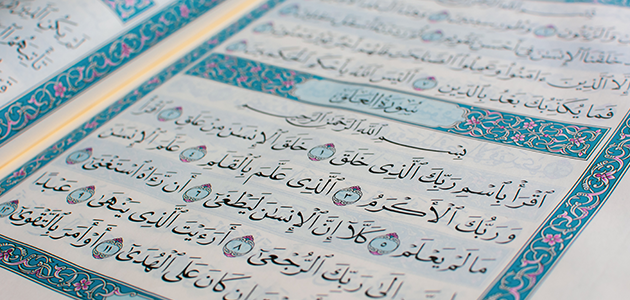 وَٱلزَّيْتُونِ
خَلَقْنَا ٱلْإِنسَٰنَ فِىٓ أَحْسَنِ
إِلَّا ٱلَّذِينَ ءَامَنُوا۟ وَعَمِلُوا۟ ٱلصَّٰلِحَٰتِ فَلَهُمْ أَجْرٌ غَيْرُ مَمْنُونٍ
فَمَا يُكَذِّبُكَ بَعْدُ بِٱلدِّينِ ٧ أَلَيْسَ ٱللَّهُ بِأَحْكَمِ ٱلْحَٰكِمِينَ
سُورَةُ العَلَقِ
بِسْمِ ٱللَّهِ ٱلرَّحْمَٰنِ ٱلرَّحِيمِ
ٱقْرَأْ بِٱسْمِ رَبِّكَ ٱلَّذِى خَلَقَ ١ خَلَقَ ٱلْإِنسَٰنَ مِنْ عَلَقٍ ٢ ٱقْرَأْ
وَرَبُّكَ ٱلْأَكْرَمُ ٣ ٱلَّذِى عَلَّمَ بِٱلْقَلَمِ ٤ عَلَّمَ ٱلْإِنسَٰنَ
مَا لَمْ يَعْلَمْ ٥ كَلَّآ إِنَّ ٱلْإِنسَٰنَ لَيَطْغَىٰٓ ٦ أَن رَّءَاهُ ٱسْتَغْنَىٰٓ ٧
إِلَىٰ رَبِّكَ ٱلرُّجْعَىٰٓ ٨ أَرَءَيْتَ ٱلَّذِى يَنْهَىٰ ٩ عَبْدًا
إِن كَانَ عَلَى ٱلْهُدَىٰٓ ١١ أَوْ أَمَرَ بِٱلتَّقْوَىٰٓ ١٢